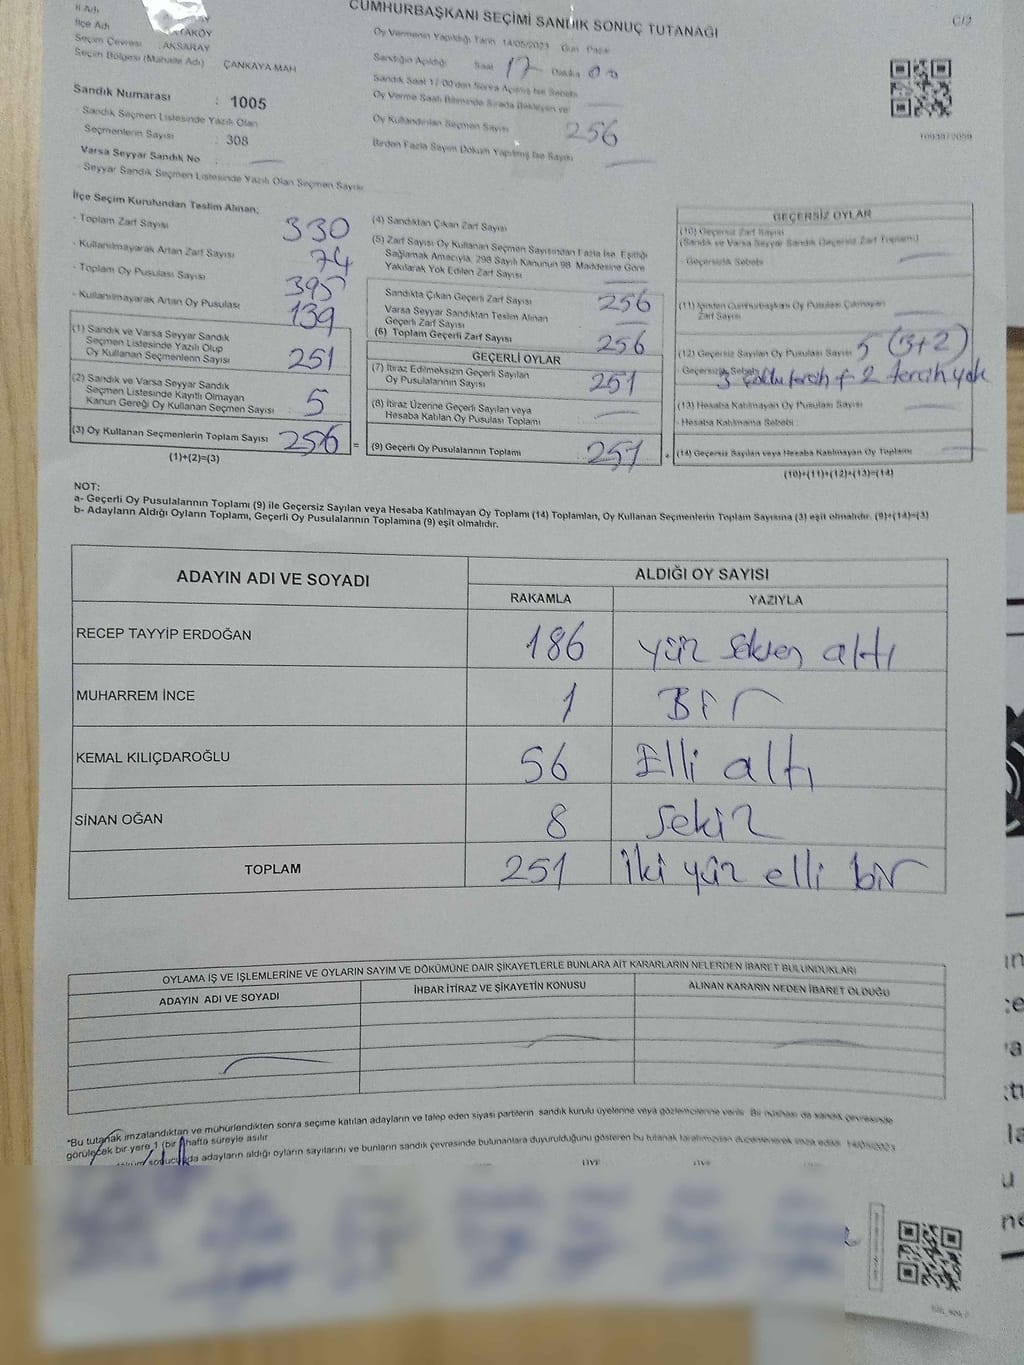 CUMHURBAŞKANI SEÇİMİ SANDIK SONUÇ TUTANAĞI
C/2
İl Adı
İlçe Adı
Seçim Çevresi : AKSARAY
Seçim Bölgesi (Mahalle Adı) ÇANKAYA MAH
Sandık Numarası : 1005
- Sandık Seçmen Listesinde Yazılı Olan
Seçmenlerin Sayısı : 308
Varsa Seyyar Sandık No :
- Seyyar Sandık Seçmen Listesinde Yazılı Olan Seçmen Sayısı
Oy Vermenin Yapıldığı Tarih 14/05/2023 Gün Pazar
Sandığın Açıldığı Saat 17 Dakika 00
Sandık Saat 17:00'den Sonra Açılmış İse Sebebi
Oy Verme Saati Bitiminde Sırada Bekleyen ve
Oy Kullandırılan Seçmen Sayısı 256
Birden Fazla Sayım Döküm Yapılmış İse Sayısı
İlçe Seçim Kurulundan Teslim Alınan;
- Toplam Zarf Sayısı 330
- Kullanılmayarak Artan Zarf Sayısı 74
- Toplam Oy Pusulası Sayısı 395
- Kullanılmayarak Artan Oy Pusulası 139
(1) Sandık ve Varsa Seyyar Sandık
Seçmen Listesinde Yazılı Olup
Oy Kullanan Seçmenlerin Sayısı 251
(2) Sandık ve Varsa Seyyar Sandık
Seçmen Listesinde Kayıtlı Olmayan
Kanun Gereği Oy Kullanan Seçmen Sayısı 5
(3) Oy Kullanan Seçmenlerin Toplam Sayısı 256 =
(1)+(2)=(3)
(4) Sandıktan Çıkan Zarf Sayısı
(5) Zarf Sayısı Oy Kullanan Seçmen Sayısından Fazla İse, Eşitliği
Sağlamak Amacıyla, 298 Sayılı Kanunun 98. Maddesine Göre
Yakılarak Yok Edilen Zarf Sayısı
Sandıkta Çıkan Geçerli Zarf Sayısı 256
Varsa Seyyar Sandıktan Teslim Alınan
Geçerli Zarf Sayısı
(6) Toplam Geçerli Zarf Sayısı 256
GEÇERLİ OYLAR
(7) İtiraz Edilmeksizin Geçerli Sayılan
Oy Pusulalarının Sayısı 251
(8) İtiraz Üzerine Geçerli Sayılan veya
Hesaba Katılan Oy Pusulası Toplamı
(9) Geçerli Oy Pusulalarının Toplamı 251 +
GEÇERSİZ OYLAR
(10) Geçersiz Zarf Sayısı
(Sandık ve Varsa Seyyar Sandık Geçersiz Zarf Toplamı)
- Geçersizlik Sebebi
(11) İçinden Cumhurbaşkanı Oy Pusulası Çıkmayan
Zarf Sayısı
(12) Geçersiz Sayılan Oy Pusulası Sayısı 5 (3+2)
Geçersizlik Sebebi 3 çoklu tercih + 2 tercih yok
(13) Hesaba Katılmayan Oy Pusulası Sayısı
- Hesaba Katılmama Sebebi :
(14) Geçersiz Sayılan veya Hesaba Katılmayan Oy Toplamı
(10)+(11)+(12)+(13)=(14)
NOT:
a- Geçerli Oy Pusulalarının Toplamı (9) ile Geçersiz Sayılan veya Hesaba Katılmayan Oy Toplamı (14) Toplamları, Oy Kullanan Seçmenlerin Toplam Sayısına (3) eşit olmalıdır. (9)+(14)=(3)
b- Adayların Aldığı Oyların Toplamı, Geçerli Oy Pusulalarının Toplamına (9) eşit olmalıdır.
ADAYIN ADI VE SOYADI ALDIĞI OY SAYISI
RAKAMLA YAZIYLA
RECEP TAYYİP ERDOĞAN 186 yüz seksen altı
MUHARREM İNCE 1 Bir
KEMAL KILIÇDAROĞLU 56 Elli altı
SİNAN OĞAN 8 sekiz
TOPLAM 251 iki yüz elli bir
OYLAMA İŞ VE İŞLEMLERİNE VE OYLARIN SAYIM VE DÖKÜMÜNE DAİR ŞİKAYETLERLE BUNLARA AİT KARARLARIN NELERDEN İBARET BULUNDUKLARI
ADAYIN ADI VE SOYADI İHBAR İTİRAZ VE ŞİKAYETİN KONUSU ALINAN KARARIN NEDEN İBARET OLDUĞU
"Bu tutanak imzalandıktan ve mühürlendikten sonra seçime katılan adayların ve talep eden siyasi partilerin sandık kurulu üyelerine veya gözlemcilerine verilir. Bir nüshası da sandık çevresinde
görülecek bir yere 1 (bir) hafta süreyle asılır
adayların aldığı oyların sayılarını ve bunların sandık çevresinde bulunanlara duyurulduğunu gösteren bu tutanak tarafımızdan düzenlenerek imza edildi. 14/05/2023
ÜYE